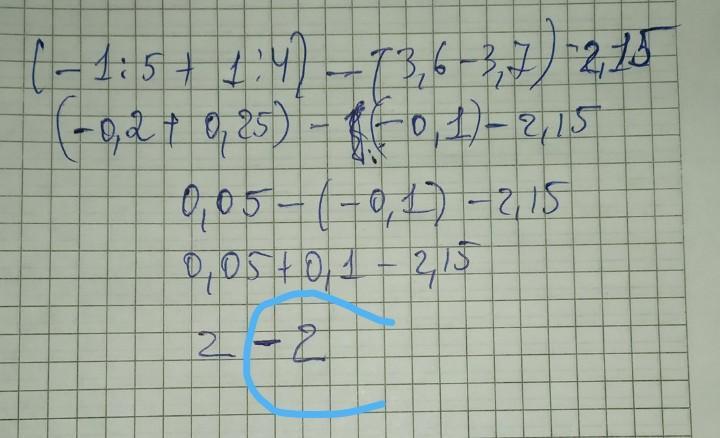 (-1:5 + 1:4) - (3,6-3,7) - 2,15
(-0,2 + 0,25) - (-0,1) - 2,15
0,05 - (-0,1) - 2,15
0,05 + 0,1 - 2,15
2 - 2